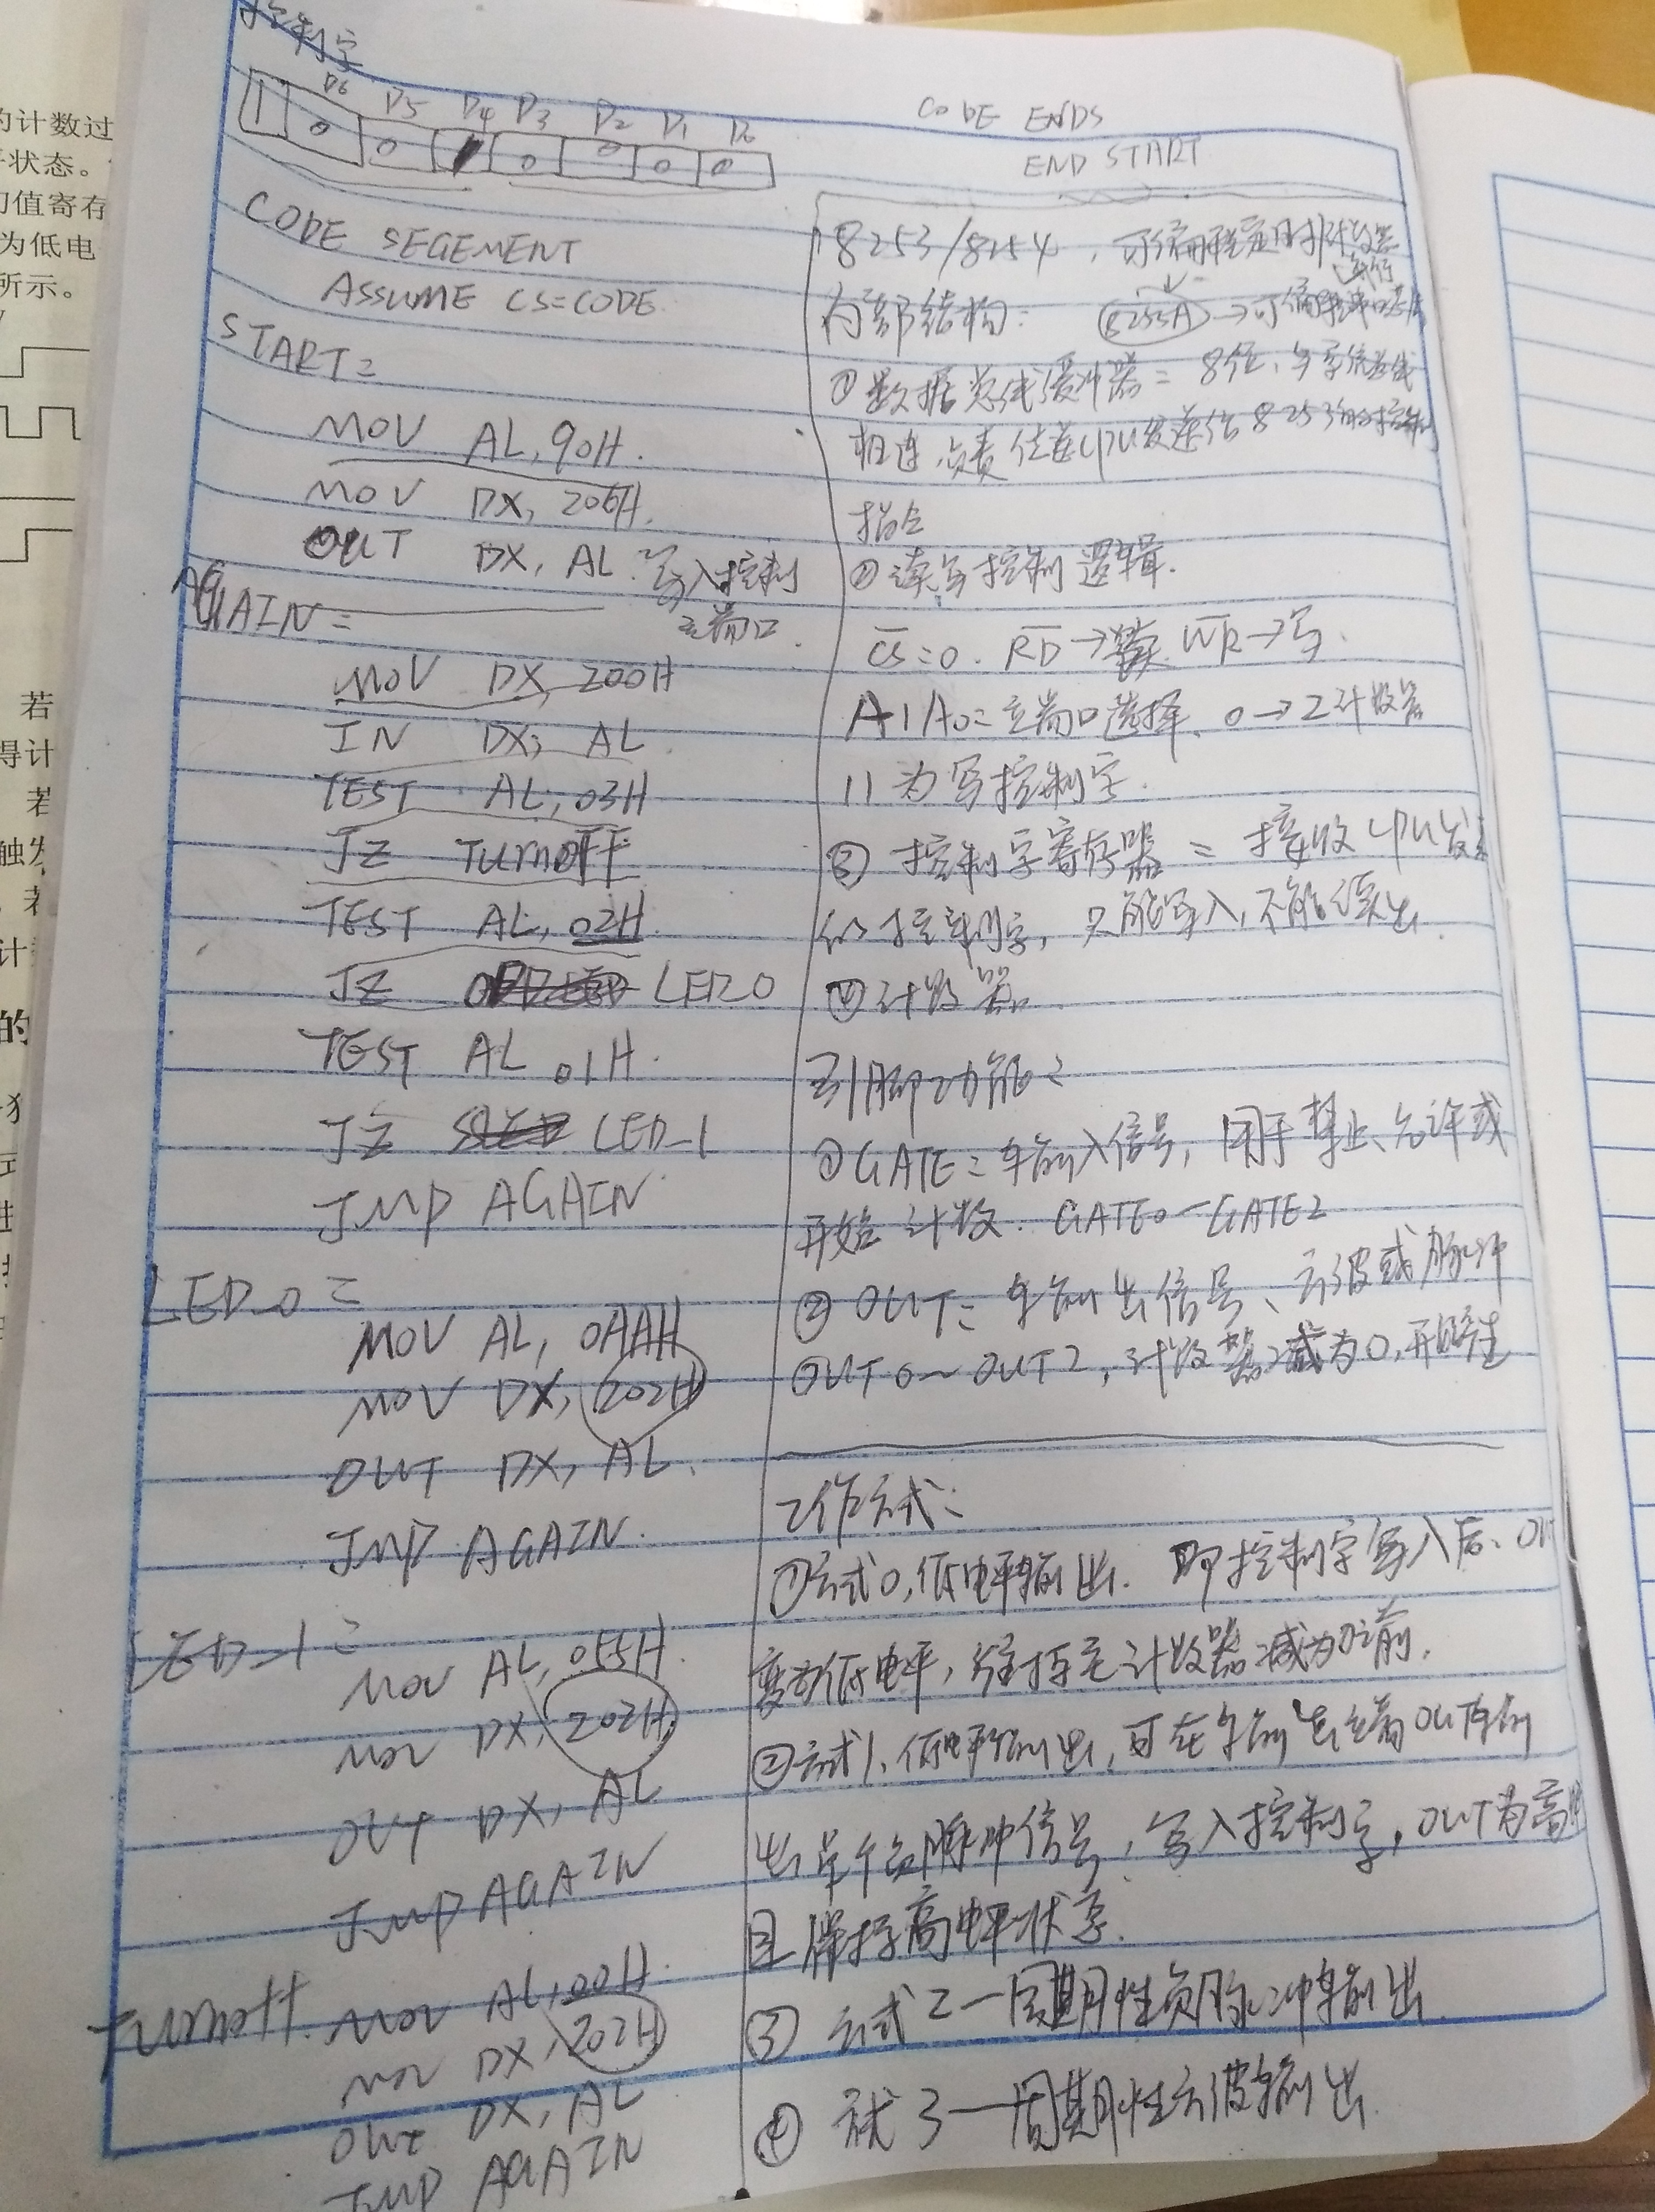 控制字
D6 D5 D4 D3 D2 D1 D0
1 0 0 1 0 0 0 0
CODE SEGEMENT
ASSUME CS=CODE
START:
MOV AL, 90H.
MOV DX, 206H.
OUT DX, AL. 写入控制
端口.
AGAIN:
MOV DX, 200H
IN DX, AL
TEST AL, 03H
JZ TurnOFF
TEST AL, 02H
JZ LED_0
TEST AL, 01H.
JZ LED_1
JMP AGAIN
LED_0:
MOV AL, 0AAH
MOV DX, 202H
OUT DX, AL.
JMP AGAIN.
LED_1:
MOV AL, 055H.
MOV DX, 202H
OUT DX, AL
JMP AGAIN
Turnoff. MOV AL, 00H.
MOV DX, 202H
OUT DX, AL
JMP AGAIN
CODE ENDS
END START
8253/8254, 可编程定时计数器
内部结构: 8255A → 可编程
①数据总线缓冲器: 8位、与系统总线
相连,负责传送CPU发送给8253的控制
指令
②读写控制逻辑.
CS=0. RD→读. WR→写.
A1A0: 端口选择、0→2计数器
11为写控制字.
③控制字寄存器: 接收CPU发
的控制字, 只能写入,不能读出.
④计数器.
引脚功能:
①GATE:输入信号, 用于禁止、允许或
开始计数. GATE0-GATE2
②OUT:输出信号、方波或脉冲
OUT0~OUT2, 计数器减为0,开始
工作方式:
①方式0,低电平输出. 即控制字写入后、OUT
变为低电平, 维持至计数器减为0之前.
②方式1、低电平输出,可在输出端OUT输
出单个负脉冲信号,写入控制字,OUT为高
且保持高电平状态.
③方式2—周期性负脉冲输出.
④方式3—周期性方波输出.
的计数过
状态。
值寄存
为低电
所示。
若
得计
若
触发
计
的